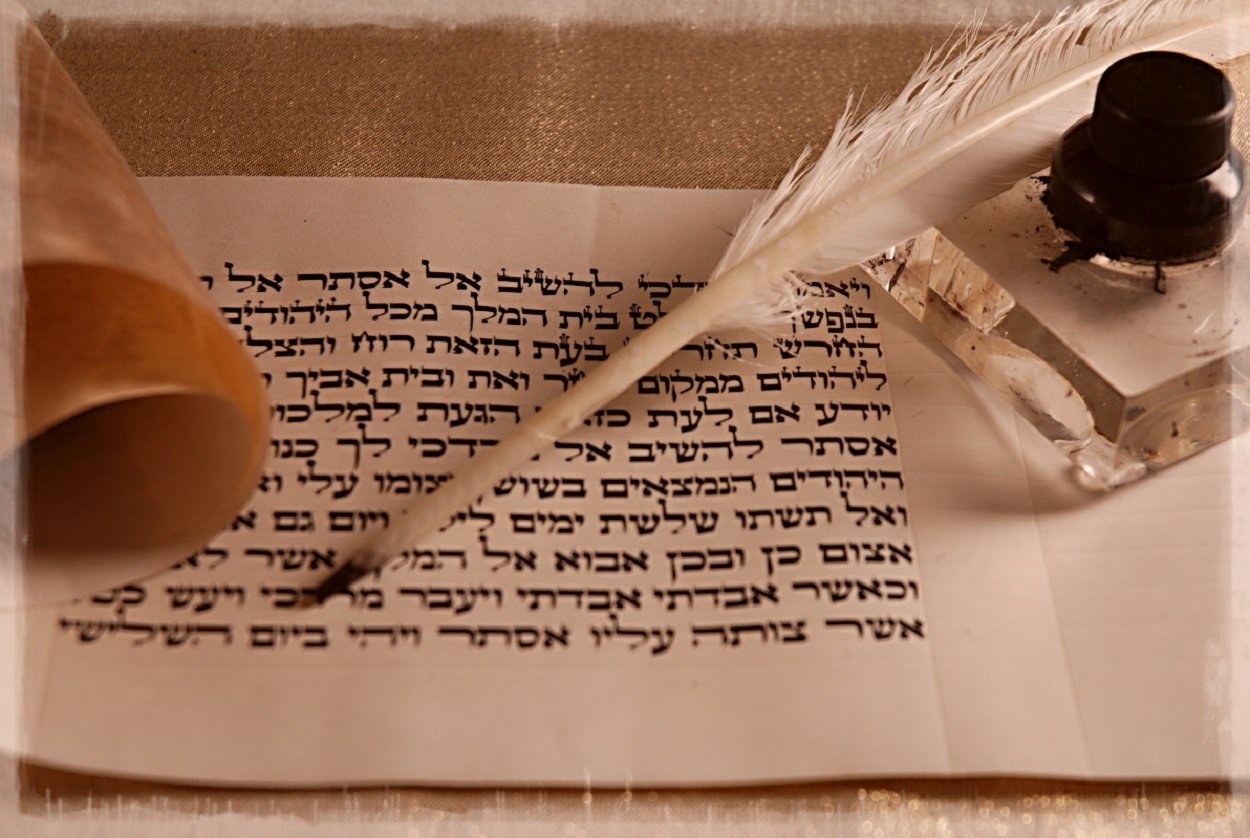 ויאמר להשיב אל אסתר אל
בנפשך בית המלך מכל היהודים
החרש בעת הזאת רוח
ליהודים ממקום ואת ובית אביך
יודע אם לעת הגעת
אסתר להשיב אל לך
היהודים הנמצאים עלי
ואל תשתו שלשת ימים ויום גם
אצום כן ובכן אבוא אל אשר
וכאשר אבדתי אבדתי ויעבר ויעש
אשר צותה עליו אסתר ויהי ביום השלישי